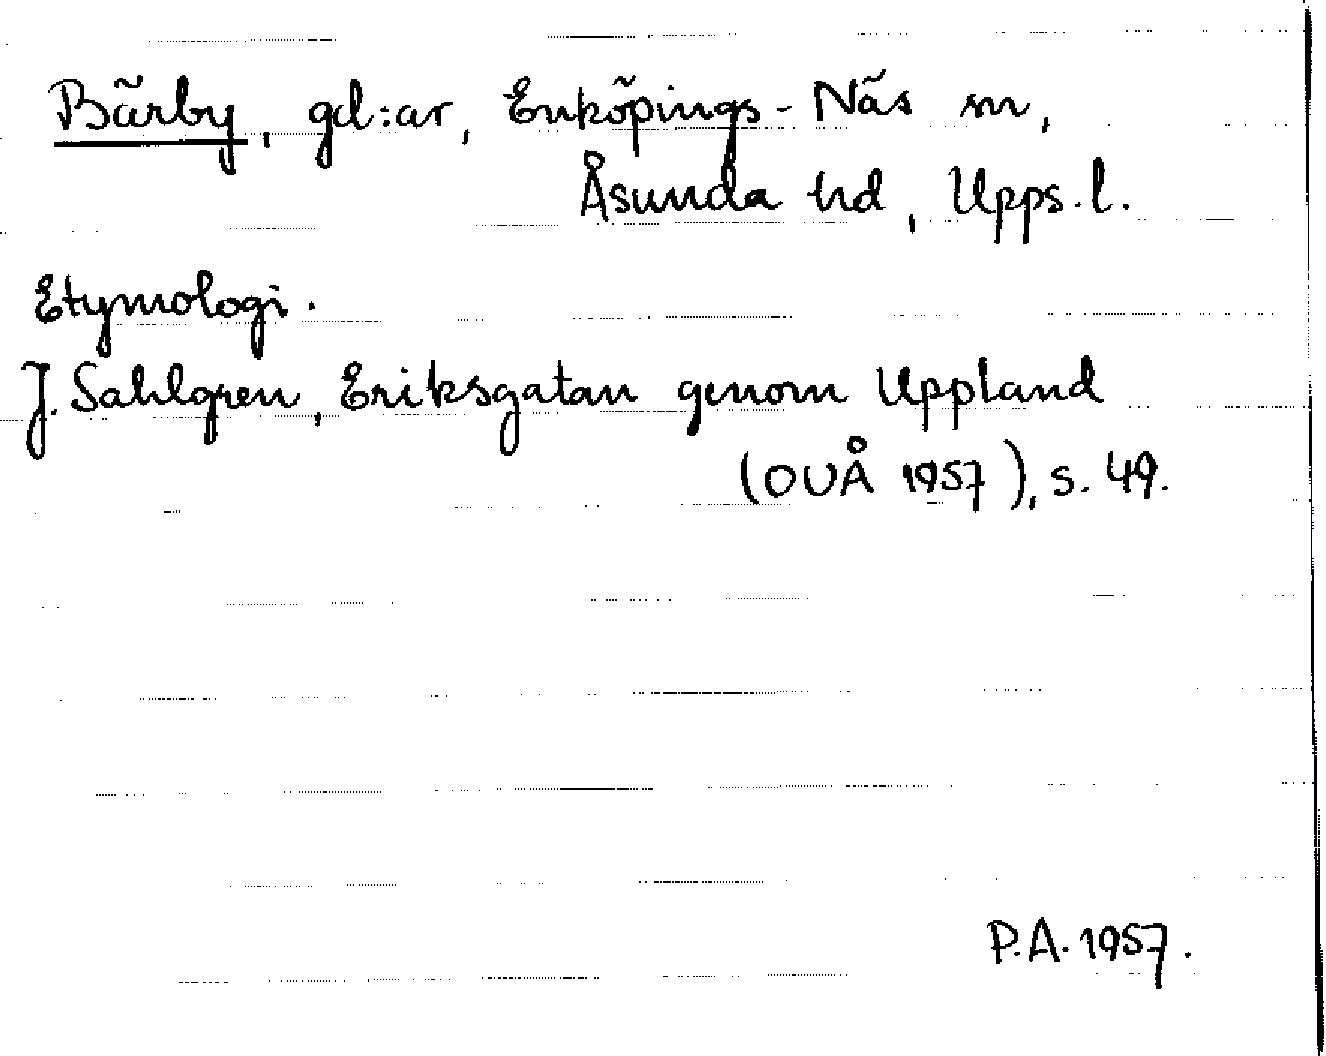 Bärby, gd:ar, Enköpings-Näs sn,
Åsunda hd, Upps.l.
Etymologi.
J. Sahlgren, Eriksgatan genom Uppland
(OUÅ 1957), s. 49.
P.A. 1957.